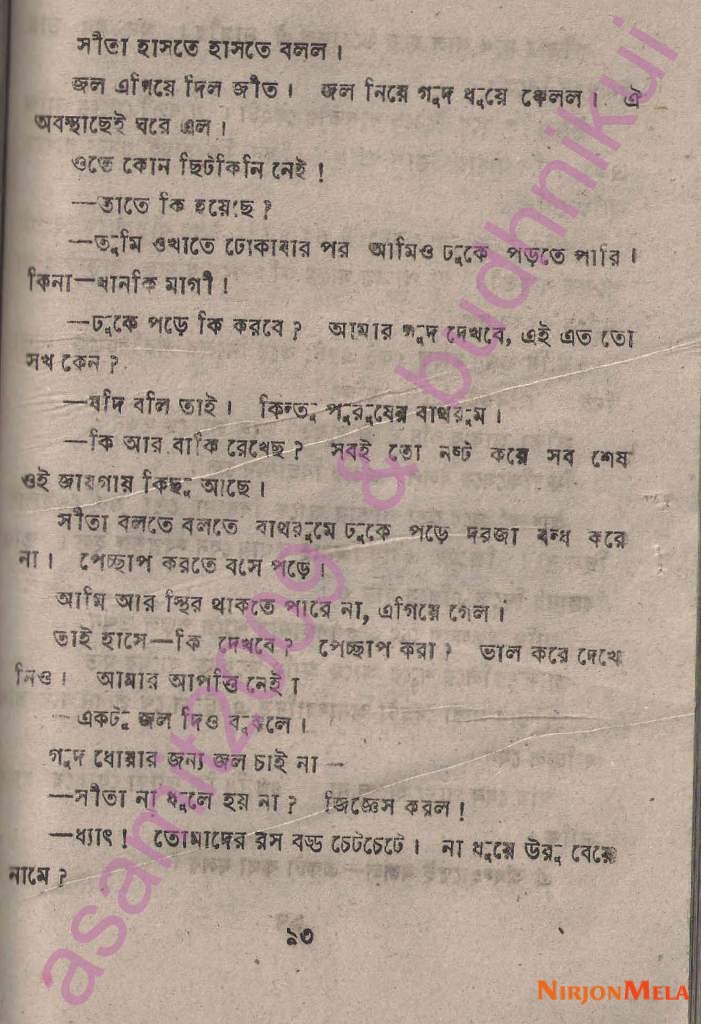 সীতা হাসতে হাসতে বলল।
জল এগিয়ে দিল জীত। জল নিয়ে গুদ ধুয়ে ফেলল। ঐ
অবস্থাছেই ঘরে এল।
ওতে কোন ছিটকিনি নেই!
—তাতে কি হয়েছে?
—তুমি ওখাতে ঢোকাবার পর আমিও ঢুকে পড়তে পারি।
কিনা—খানকি মাগী!
—ঢুকে পড়ে কি করবে? আমার গুদ দেখবে, এই এত তো
সখ কেন?
—যদি বলি তাই। কিন্তু পুরুষের বাথরুম।
—কি আর বাকি রেখেছ? সবই তো নষ্ট করে সব শেষ
ওই জায়গায় কিছু আছে।
সীতা বলতে বলতে বাথরুমে ঢুকে পড়ে দরজা বন্ধ করে
না। পেচ্ছাপ করতে বসে পড়ে।
আমি আর স্থির থাকতে পারে না, এগিয়ে গেল।
তাই হাসে—কি দেখবে? পেচ্ছাপ করা? ভাল করে দেখে
নিও। আমার আপত্তি নেই।
—একটু জল দিও বুঝলে।
গুদ ধোয়ার জন্য জল চাই না—
—সীতা না ধুলে হয় না? জিজ্ঞেস করল!
—ধ্যাৎ! তোমাদের রস বড্ড চেটচেটে। না ধুয়ে উরু বেয়ে
নামে?
৯৩
asamit2009 & budhnikui
NIRJONMELA